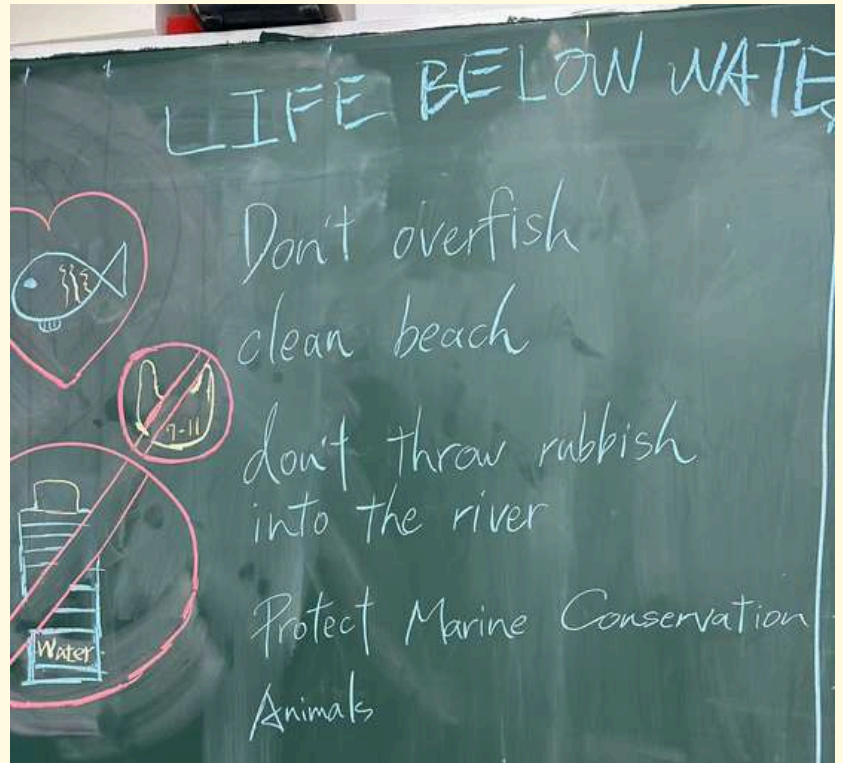 LIFE BELOW WATE
Don't overfish
clean beach
7-11
don't throw rubbish
into the river
Protect Marine Conservation
Water
Animals